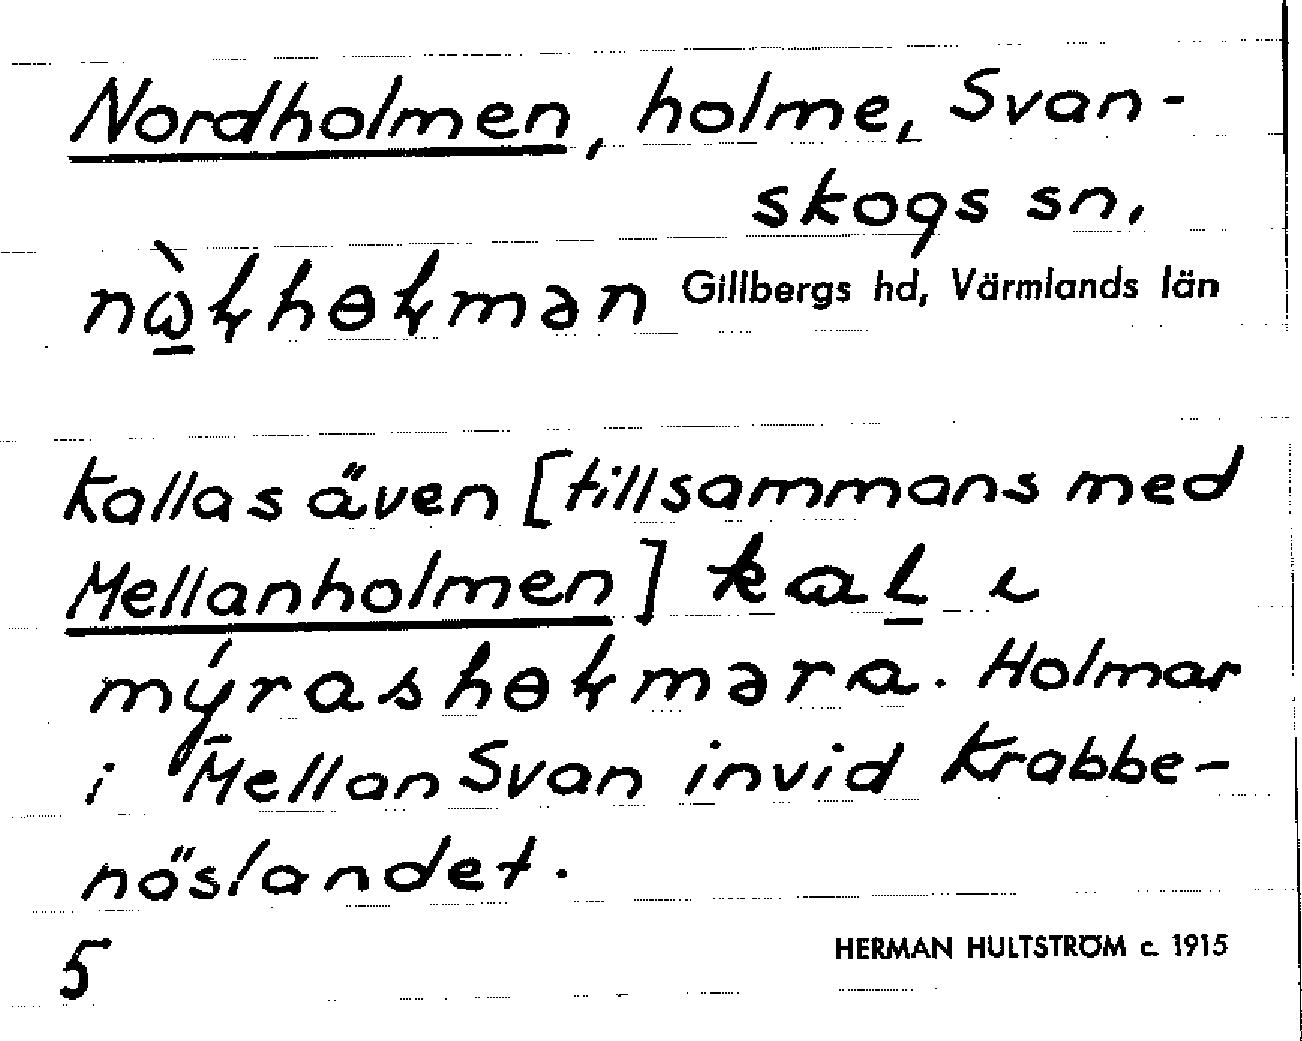 Nordholmen, holme, Svan-
skogs sn,
nὼɽhɵɽmən Gillbergs hd, Värmlands län
kallas även [tillsammans med
Mellanholmen] kaL ɩ
mýrashɵɽməra. Holmar
i Mellan Svan invid Krabbe-
nöslandet.
5 HERMAN HULTSTRÖM c. 1915